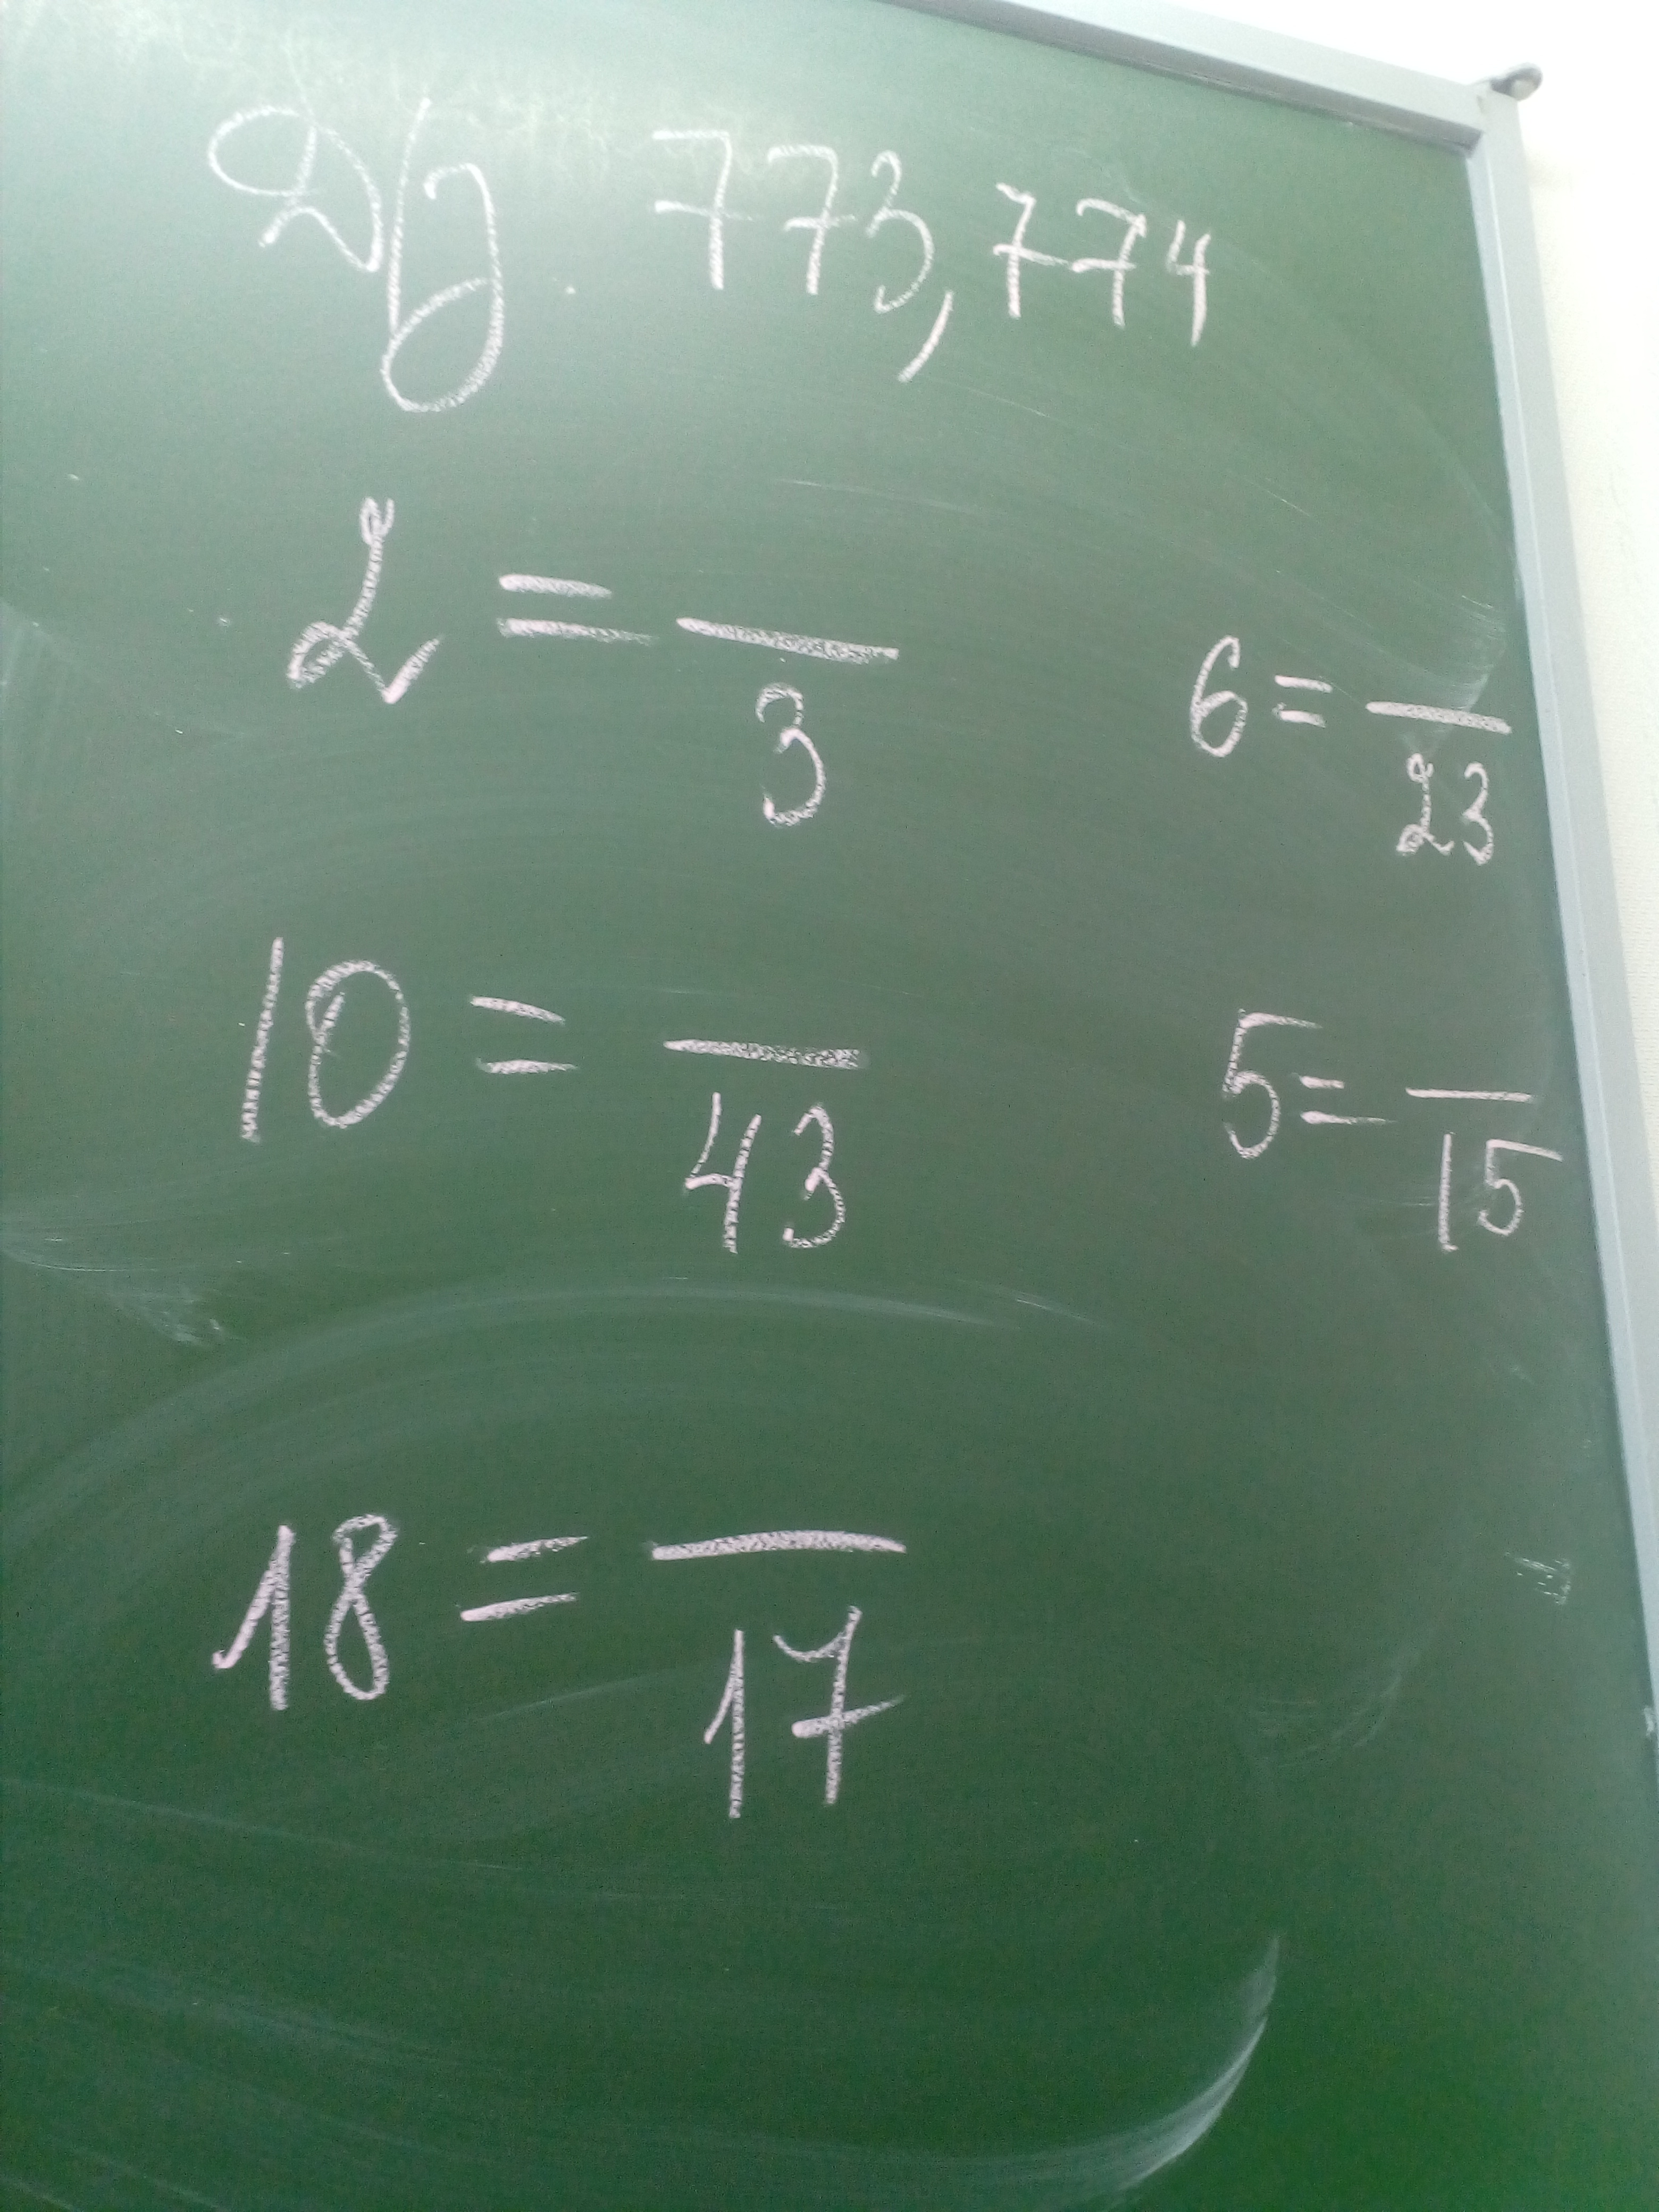 Dз. 773, 774
2 = — 3
6 = — 23
10 = — 43
5 = — 15
18 = — 17